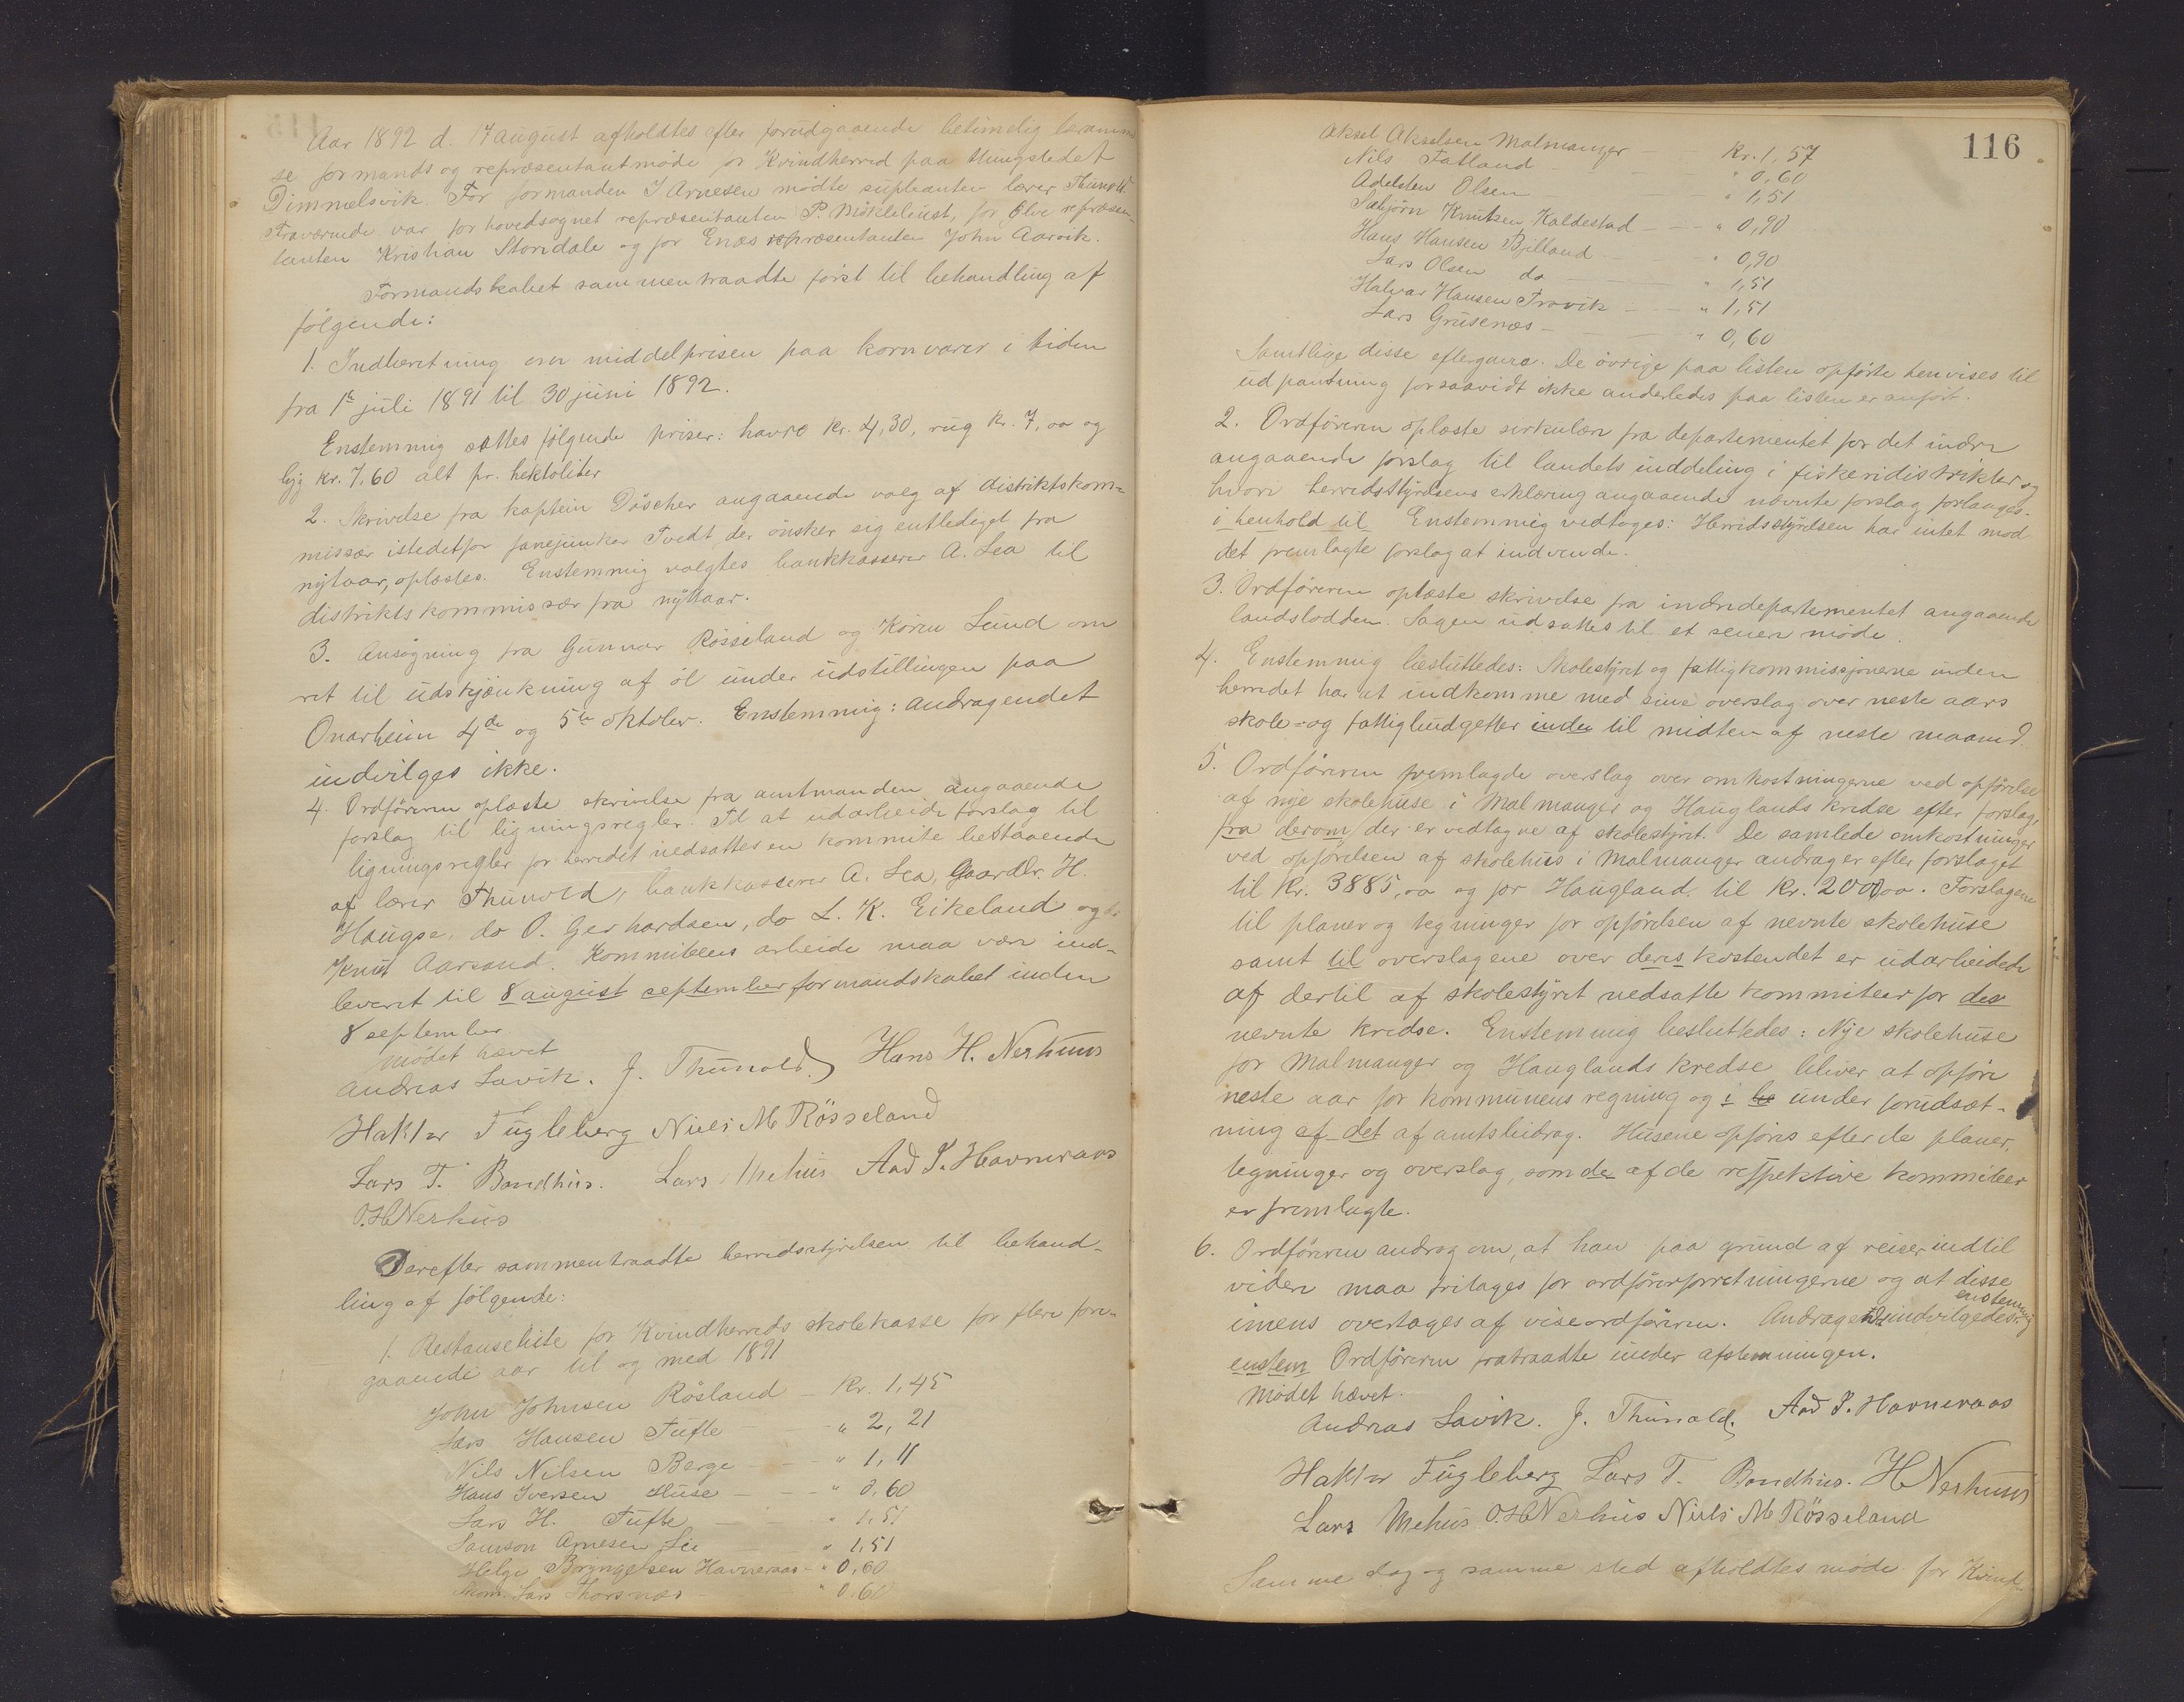 Aar 1892 d. 17 august afholdtes efter forudgaaende betimelig beramm
se formands og repræsentantmøde for Kvindherred paa thingstedet
Dimmelsvik. For formanden I Arnesen mødte supleanten lærer Thunold
Fraværende var for hovedsognet repræsentanten P. Møklebust, for Ølve repræsen-
tanten Kristian Storidale og for Enæs repræsentanten John Aarvik.
Formandskabet sammentraadte først til behandling af
følgende:
1. Indberetning om middelprisen paa kornvarer i tiden
fra 1ste juli 1891 til 30 juni 1892.
Enstemmig sattes følgende priser: havre kr. 4,30, rug kr. 7,oo og
byg kr. 7,60 alt pr. hektoliter
2. Skrivelse fra kaptein Døscher angaaende valg af distriktskom-
missær istedetfor fanejunker Tvedt, der ønsker sig entlediget fra
nytaar, oplæstes. Enstemmig valgtes bankkasserer A. Lea til
distriktskommissær fra nyttaar.
3. Ansøgning fra Gunnar Røsseland og Karen Lund om
ret til udskjænkning af øl under udstillingen paa
Onarheim 4de og 5te oktober. Enstemmig: Andragendet
indvilges ikke.
4. Ordføreren oplæste skrivelse fra amtmanden angaaende
forslag til ligningsregler. Til at udarbeide forslag til
ligningsregler for herredet nedsattes en kommite bestaaende
af lærer Thunold, bankkasserer A. Lea, Gaardbr. H.
Haugse, do O. Gerhardsen, do L. K. Eikeland og do
Knut Aarsand. Kommiteens arbeide maa være ind-
leveret til 8 august september formandskabet inden
8 september.
Mødet hævet
Andreas Lavik. J. Thunold. Hans H. Nerhuus
Haktor Fugleberg Niels M Røsseland
Lars T. Bondhus. Lars Mehus Aad J. Havneraas
O. H Nerhus
Derefter sammentraadte herredsstyrelsen til behand-
ling af følgende:
1. Restanseliste for Kvindherreds skolekasse for flere fore-
gaaende aar til og med 1891
John Johnsen Røsland – Kr. 1,45
Lars Hansen Tufte – " 2,21
Nils Nilsen Berge – " 1,11
Hans Iversen Huse – – " 0,60
Lars H. Tufte – " 1,51
Samson Arnesen Lie " 1,51
Helge Brynjelsen Havneraas – " 0,60
Lars Thorsnæs – " 0,60
116
Aksel Akselsen Malmanger – Kr. 1,57
Nils Fatland – " 0,60
Adelsten Olsen " 1,51
Sæbjørn Knutsen Kaldestad – – " 0,90
Hans Hansen Bjelland – " 0,90
Lars Olsen do – " 1,51
Halvar Hansen Travik – – " 1,51
Lars Grusenæs – " 0,60
Samtlige disse eftergaves. De øvrige paa listen opførte henvises til
udpantning forsaavidt ikke anderledes paa listen er anført.
2. Ordføreren oplæste sirkulære fra departementet for det indre
angaaende forslag til landets inddeling i fiskeridistrikter og
hvori herredsstyrelsens erklæring angaaende nævnte forslag forlanges.
i henhold til Enstemmig vedtages: Herredsstyrelsen har intet mod
det fremlagte forslag at indvende.
3. Ordføreren oplæste skrivelse fra indredepartementet angaaende
landslodden. Sagen udsattes til et senere møde.
4. Enstemmig besluttedes: Skolestyret og fattigkommissjonerne inden
herredet har at indkomme med sine overslag over neste aars
skole- og fattigbudgetter inden til midten af neste maaned.
5. Ordføreren fremlagde overslag over omkostningerne ved opførelse
af nye skolehuse i Malmanger og Hauglands kredse efter forslag,
fra derom der er vedtagne af skolestyret. De samlede omkostninger
ved opførelsen af skolehus i Malmanger andrager efter forslaget
til kr. 3885,oo og for Haugland til kr. 2000,oo. Forslagene
til planer og tegninger for opførelsen af nevnte skolehuse
samt til overslagene over deres kostendet er udarbeidede
af dertil af skolestyret nedsatte kommiteer for des
nevnte kredse. Enstemmig besluttedes: Nye skolehuse
for Malmanger og Hauglands kredse bliver at opføre
neste aar for kommunens regning og i be under forudsæt-
ning af det af amtsbidrag. Husene opføres efter de planer,
tegninger og overslag, som de af de respektive kommiteer
er fremlagte.
6. Ordføreren androg om, at han paa grund af reiser indtil
videre maa fritages for ordførerforretningerne og at disse
imens overtages af viseordføreren. Andragendet indvilgedes enstemmig
enstem Ordføreren fratraadte under afstemningen.
Mødet hævet.
Andreas Lavik. J. Thunold. Aad J. Havneraas
Haktor Fugleberg Lars T. Bondhus. H Nerhuus
Lars Mehus O. H Nerhus Niels M Røsseland
Samme dag og samme sted afholdtes møde for Kvind-